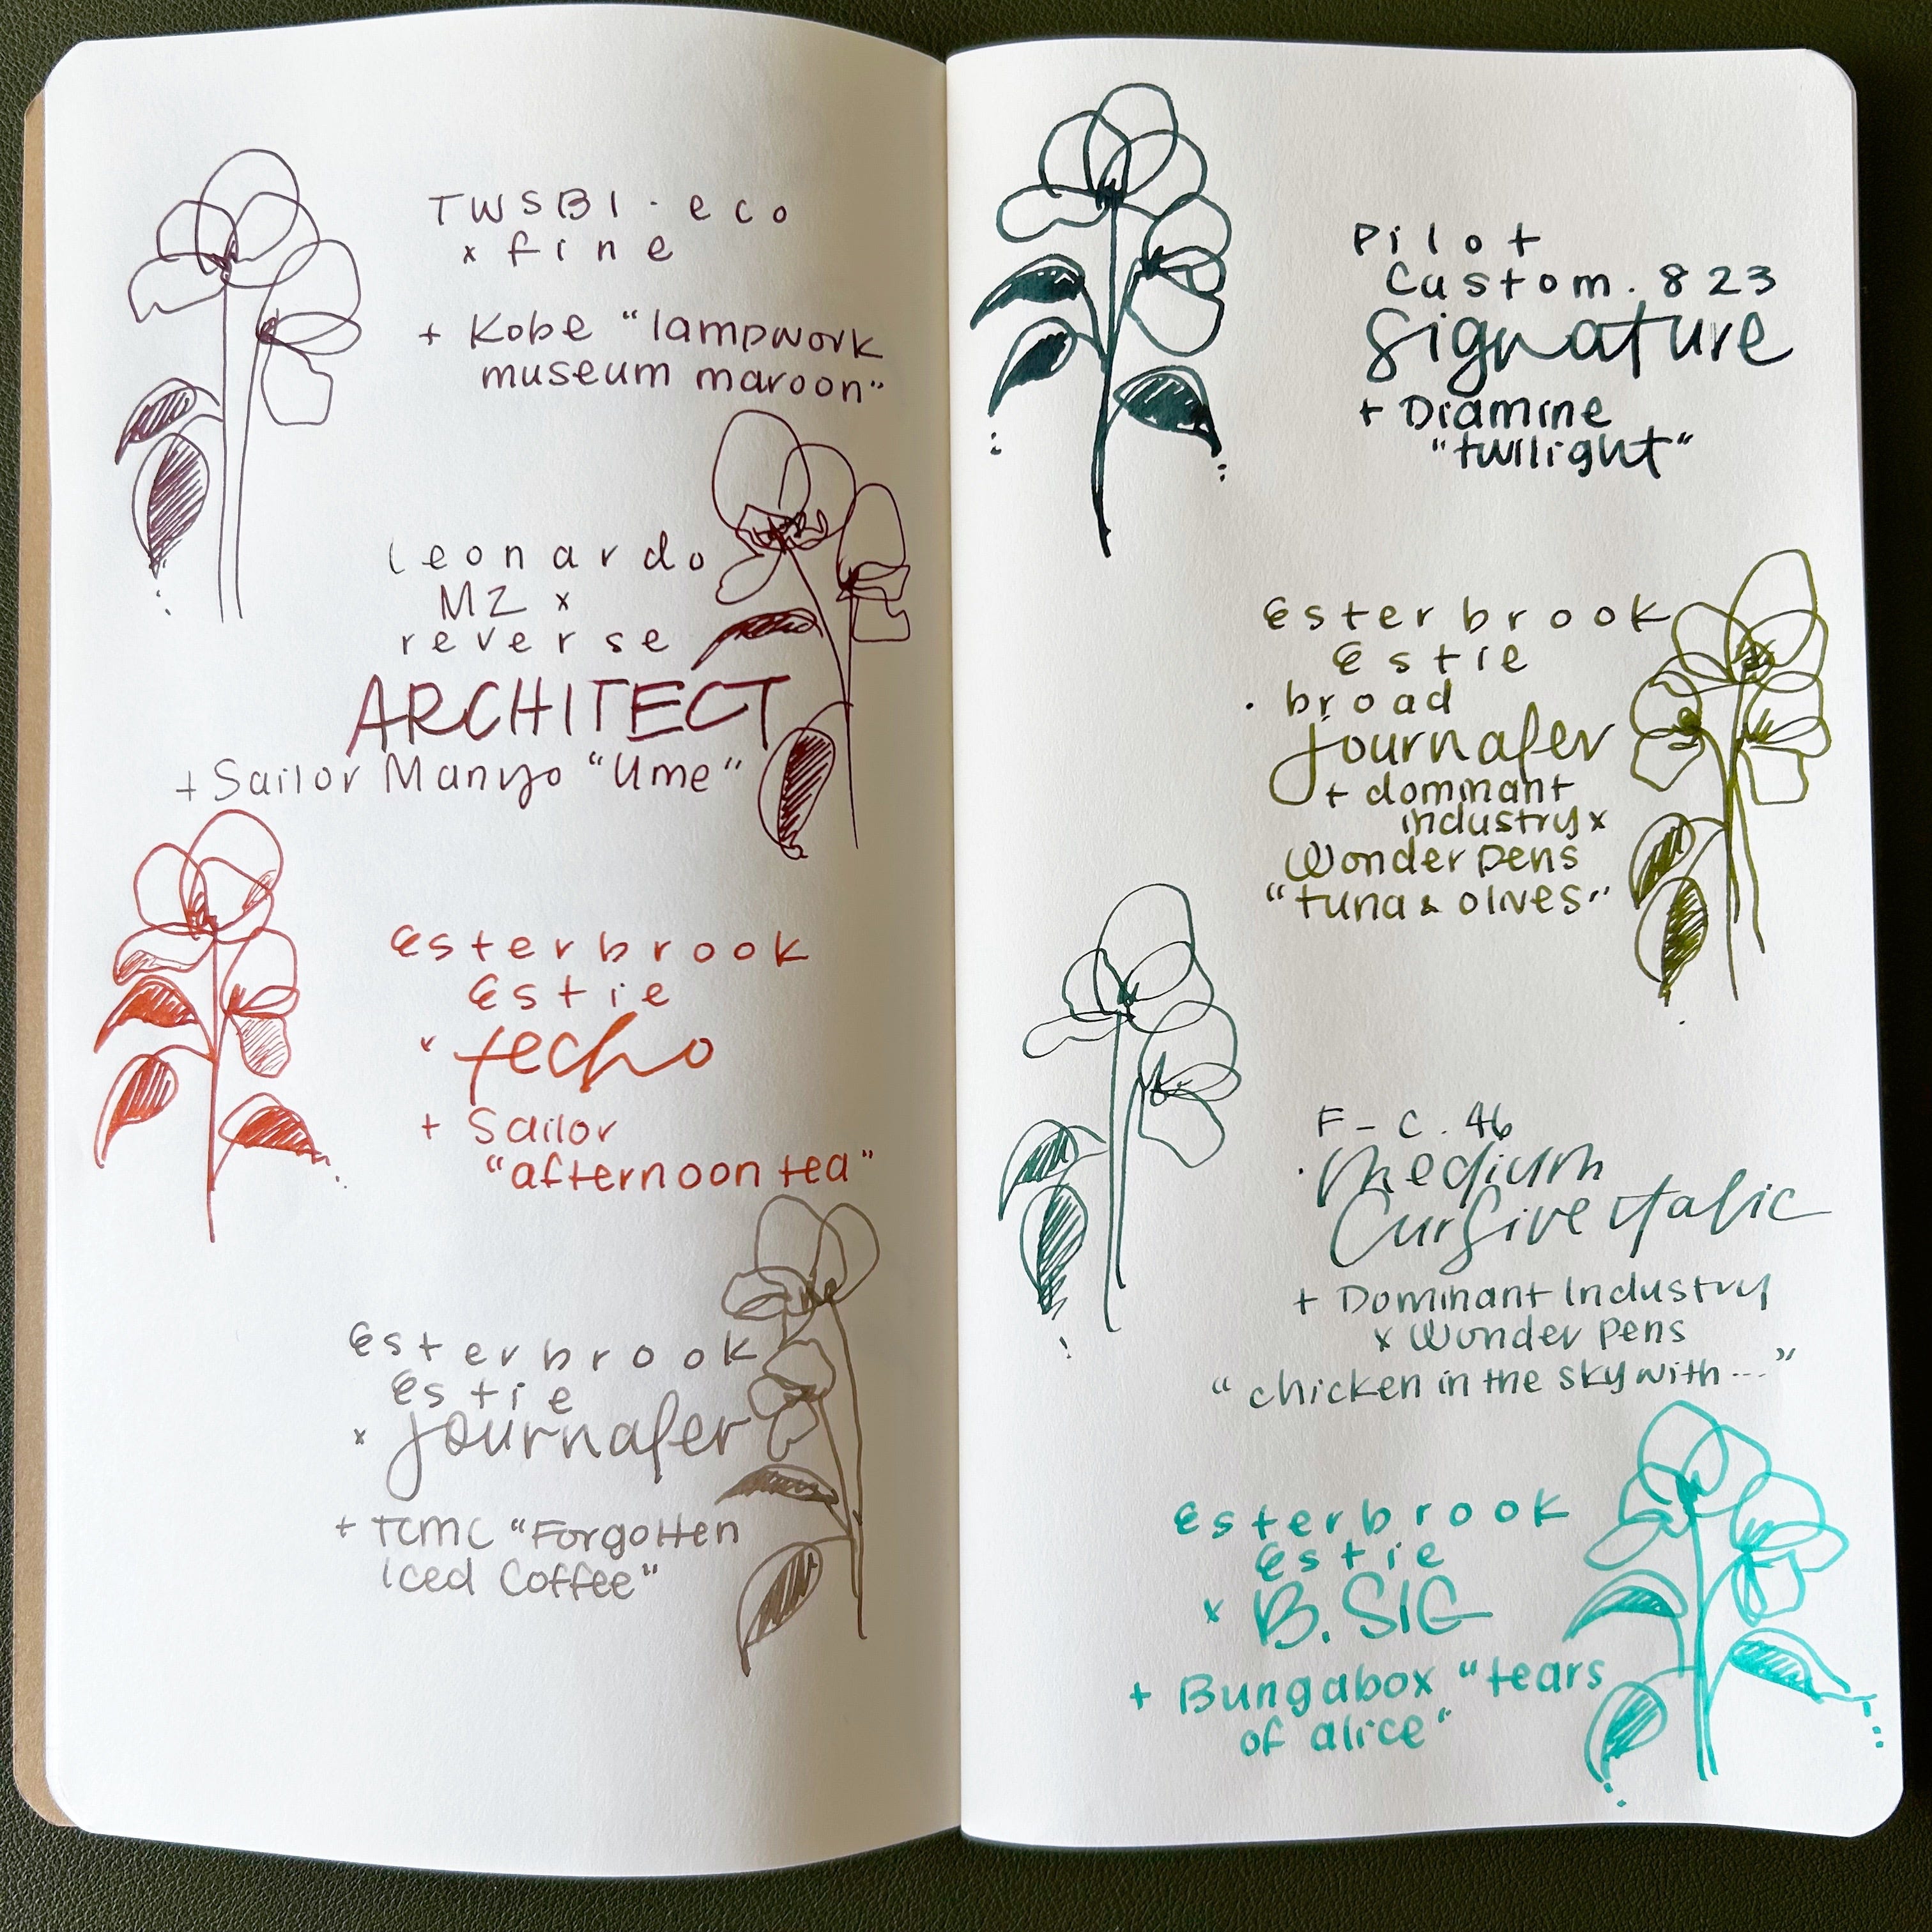 TWSBI · eco
x fine
+ Kobe "lampwork
museum maroon"
leonardo
MZ x
reverse
ARCHITECT
+ Sailor Manyo "Ume"
Esterbrook
Estie
x techo
+ Sailor
"afternoon tea"
Esterbrook
Estie
x journaler
+ TCMC "Forgotten
Iced Coffee"
Pilot
Custom . 823
Signature
+ Diamine
"twilight"
Esterbrook
Estie
· broad
journaler
+ dominant
industry x
Wonder pens
"tuna & olives"
F - C . 46
· Medium
Cursive Italic
+ Dominant Industry
x Wonder pens
"chicken in the sky with ..."
Esterbrook
Estie
x B. SIG
+ Bungabox "tears
of alice"